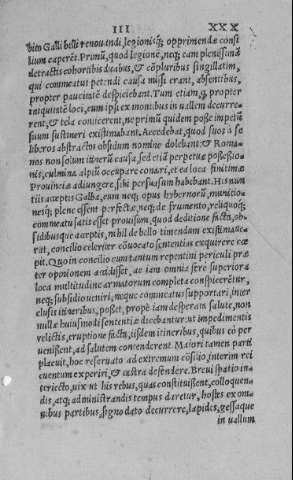 III XXX
bito Galli belli renouandi, legionisq; opprimendæ consi
lium caperet. Primũ, quod legionẽ, neq; eam plenissimã
detractis cohortibus duabus, & cõpluribus singillatim,
qui commeatus petendi causa missi erant, absentibus,
propter paucitatẽ despiciebant. Tum etiam, q; propter
iniquitatẽ loci, cum ipsi ex montibus in uallem decurre-
rent, & tela coniicerent, ne primũ quidem posse impetũ
suum sustineri existimabant. Accedebat, quod suos à se
liberos abstractos obsidum nomine dolebant: & Roma-
nos non solum itinerũ causa, sed etiã perpetuæ possessio-
nis, culmina alpiũ occupare conari, et ea loca finitimæ
Prouinciæ adiungere, sibi persuasum habebant. His nun
tiis acceptis Galba, cum neq; opus hybernorũ, munitio-
nesq; plene essent perfectæ, neq; de frumento, reliquoq;
commeatu satis esset prouisum, quod deditione facta, ob-
sidibusque acceptis, nihil de bello timendum existimaue
rat, concilio celeriter cõuocato sententias exquirere cœ
pit. Quo in concilio cum tantum repentini periculi præ
ter opinionem accidisset, ac iam omnia ferè superiora
loca multitudine armatorum completa conspicerẽtur,
neq; subsidio ueniri, neque commeatus supportari, inter
clusis itineribus, possẽt, propè iam desperata salute, non
nullæ huiusmodi sententiæ dicebantur: ut impedimentis
relictis, eruptione facta, iisdem itineribus, quibus eò per
uenissent, ad salutem contenderent. Maiori tamen parti
placuit, hoc reseruato ad extremum cõsilio, interim rei
euentum experiri, & castra defendere. Breui spatio in-
teriecto, uix ut his rebus, quas constituissent, collocan-
dis, atq; administrandis tempus daretur, hostes ex om-
nibus partibus, signo dato decurrere, lapides, gessaque
in uallum